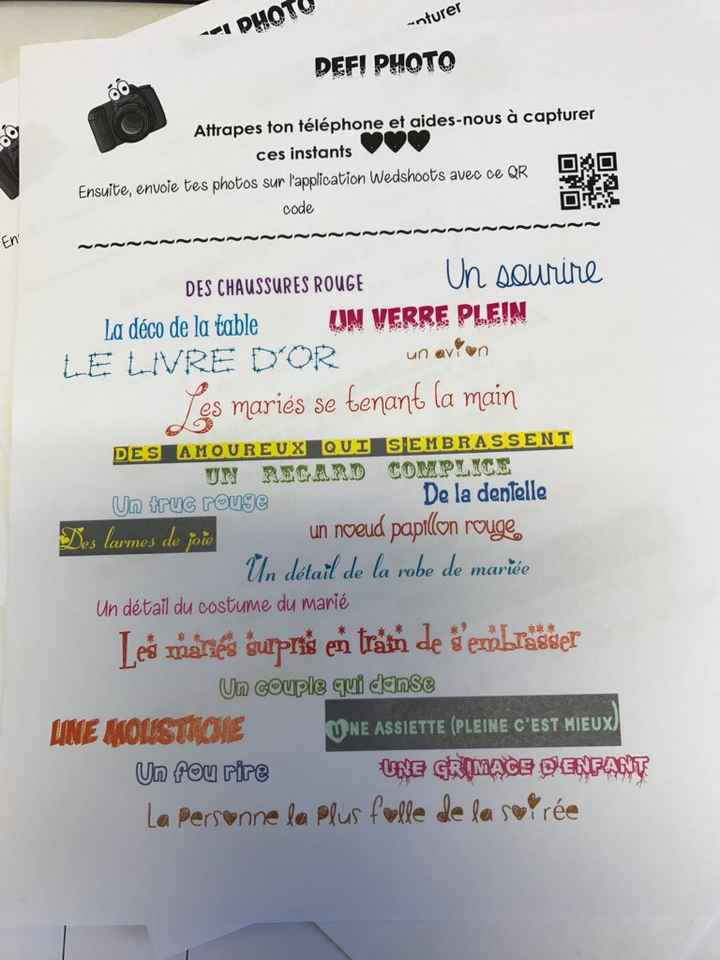 DEFI PHOTO
nturer
DEFI PHOTO
Attrapes ton téléphone et aides-nous à capturer
ces instants ♥♥♥
Ensuite, envoie tes photos sur l'application Wedshoots avec ce QR
code
En
~~~~~~~~~~~~~~~~~~~~~~~~~~~~~~~~
DES CHAUSSURES ROUGE
Un sourire
La déco de la table
UN VERRE PLEIN
LE LIVRE D'OR
un avion
Les mariés se tenant la main
DES AMOUREUX QUI S'EMBRASSENT
UN REGARD COMPLICE
Un truc rouge
De la dentelle
Des larmes de joie
un noeud papillon rouge
Un détail de la robe de mariée
Un détail du costume du marié
Les mariés surpris en train de s'embrasser
Un couple qui danse
UNE MOUSTACHE
UNE ASSIETTE (PLEINE C'EST MIEUX)
Un fou rire
UNE GRIMACE D'ENFANT
La personne la plus folle de la soirée